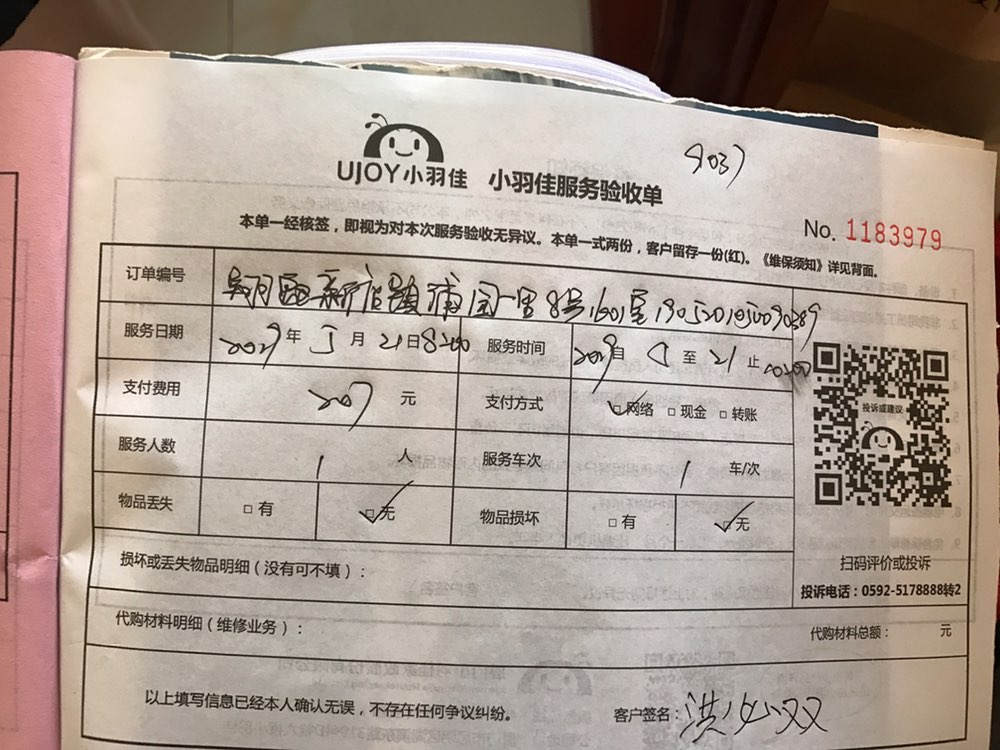 9037
UJOY小羽佳 小羽佳服务验收单
No. 1183979
本单一经核签，即视为对本次服务验收无异议。本单一式两份，客户留存一份(红)。《维保须知》详见背面。
订单编号 新店镇浦园一里8号1601室
服务日期 年 5 月 21 日 服务时间 自 至 21 止
支付费用 207 元 支付方式 ☑网络 □现金 □转账
投诉或建议
服务人数 1 人 服务车次 1 车/次
物品丢失 □有 ☑无 物品损坏 □有 ☑无
扫码评价或投诉
损坏或丢失物品明细（没有可不填）：
投诉电话：0592-5178888转2
代购材料明细（维修业务）： 代购材料总额： 元
以上填写信息已经本人确认无误，不存在任何争议纠纷。 客户签名：洪 双